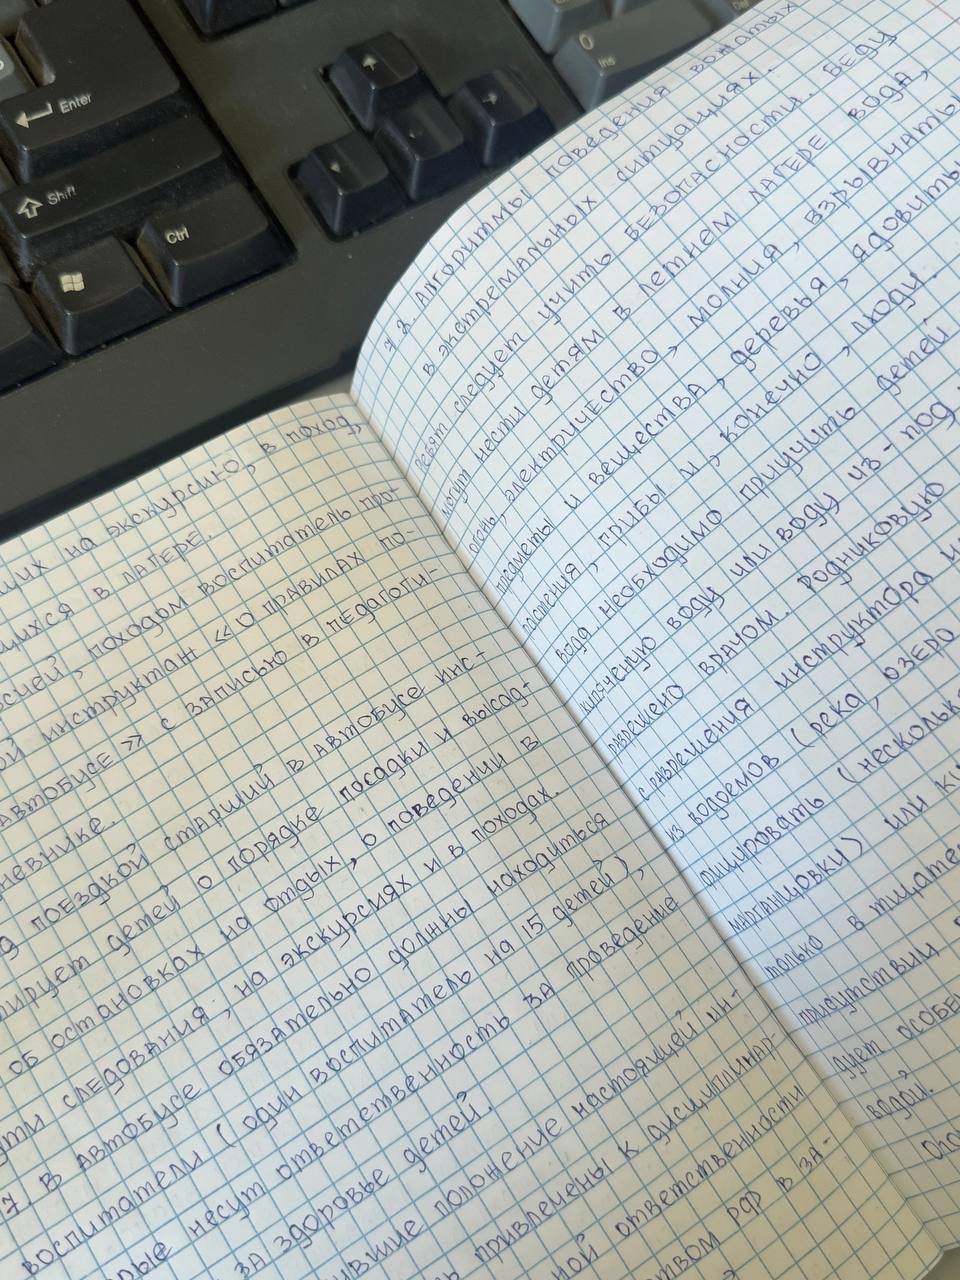 Enter
Shift
Ctrl
0
Ins
Del
на экскурсию, в поход,
в лагере.
походом воспитатель про-
инструктаж «О правилах по-
автобусе» с записью в педагоги-
невнике.
поездкой старший в автобусе инс-
тирует детей о порядке посадки и высад-
об остановках на отдых, о поведении в
ути следования, на экскурсиях и в походах.
7. В автобусе обязательно должны находиться
воспитатели (один воспитатель на 15 детей),
рые несут ответственность за проведение
за здоровье детей.
ившие положение настоящей ин-
привлечены к дисциплинар-
ной ответственности
твом РФ в за-
Алгоритмы поведения вожатых
в экстремальных ситуациях.
Ребят следует учить безопасности. Беду
могут нести детям в летнем лагере вода,
огонь, электричество, молния, взрывчаты
предметы и вещества, деревья, ядовиты
растения, грибы и, конечно, люди
Вода. Необходимо приучить детей
кипяченую воду или воду из-под
разрешено врачом. Родниковую
с разрешения инструктора и
из водоемов (река, озеро
фицировать (несколько
марганцовки) или ки
только в тщател
присутствии
дует особен
водой.